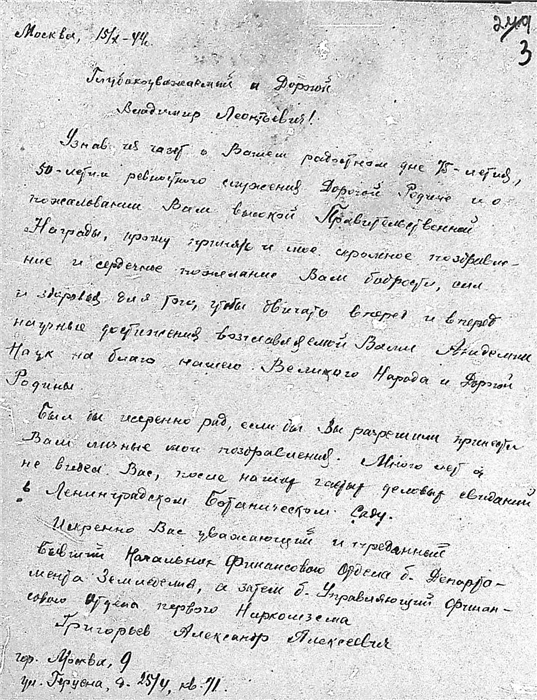 249
3
Москва, 15/X-44г.
Глубокоуважаемый и Дорогой
Владимир Леонтьевич!
Узнав из газет о Вашем радостном дне 75-летия,
50-летия ревностного служения Дорогой Родине и о
пожаловании Вам высокой Правительственной
Награды, прошу принять и мое скромное поздравле-
ние и сердечное пожелание Вам бодрости, сил
и здоровья для того, чтобы двигать вперед и вперед
научные достижения возглавляемой Вами Академии
Наук на благо нашего Великого Народа и Дорогой
Родины.
Был бы искренно рад, если бы Вы разрешили принести
Вам личные мои поздравления. Много лет я
не видел Вас, после наших деловых свиданий
в Ленинградском Ботаническом Саду.
Искренно Вас уважающий и преданный
Бывший Начальник Финансового Отдела б. Департа-
мента Земледелия, а затем б. Управляющий Финан-
сового отдела первого Наркомзема
Григорьев Александр Алексеевич
гор. Москва, 9
ул. Герцена, д. 25/4, кв. 71.